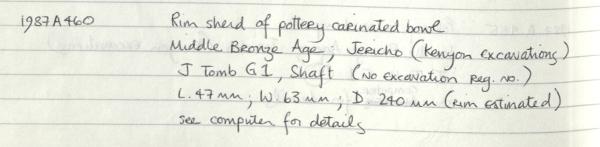 1987A460 Rim sherd of pottery carinated bowl
Middle Bronze Age; Jericho (Kenyon excavations)
J Tomb G1, Shaft (No excavation reg. no.)
L. 47 mm; W. 63 mm; D. 240 mm (rim estimated)
see computer for details